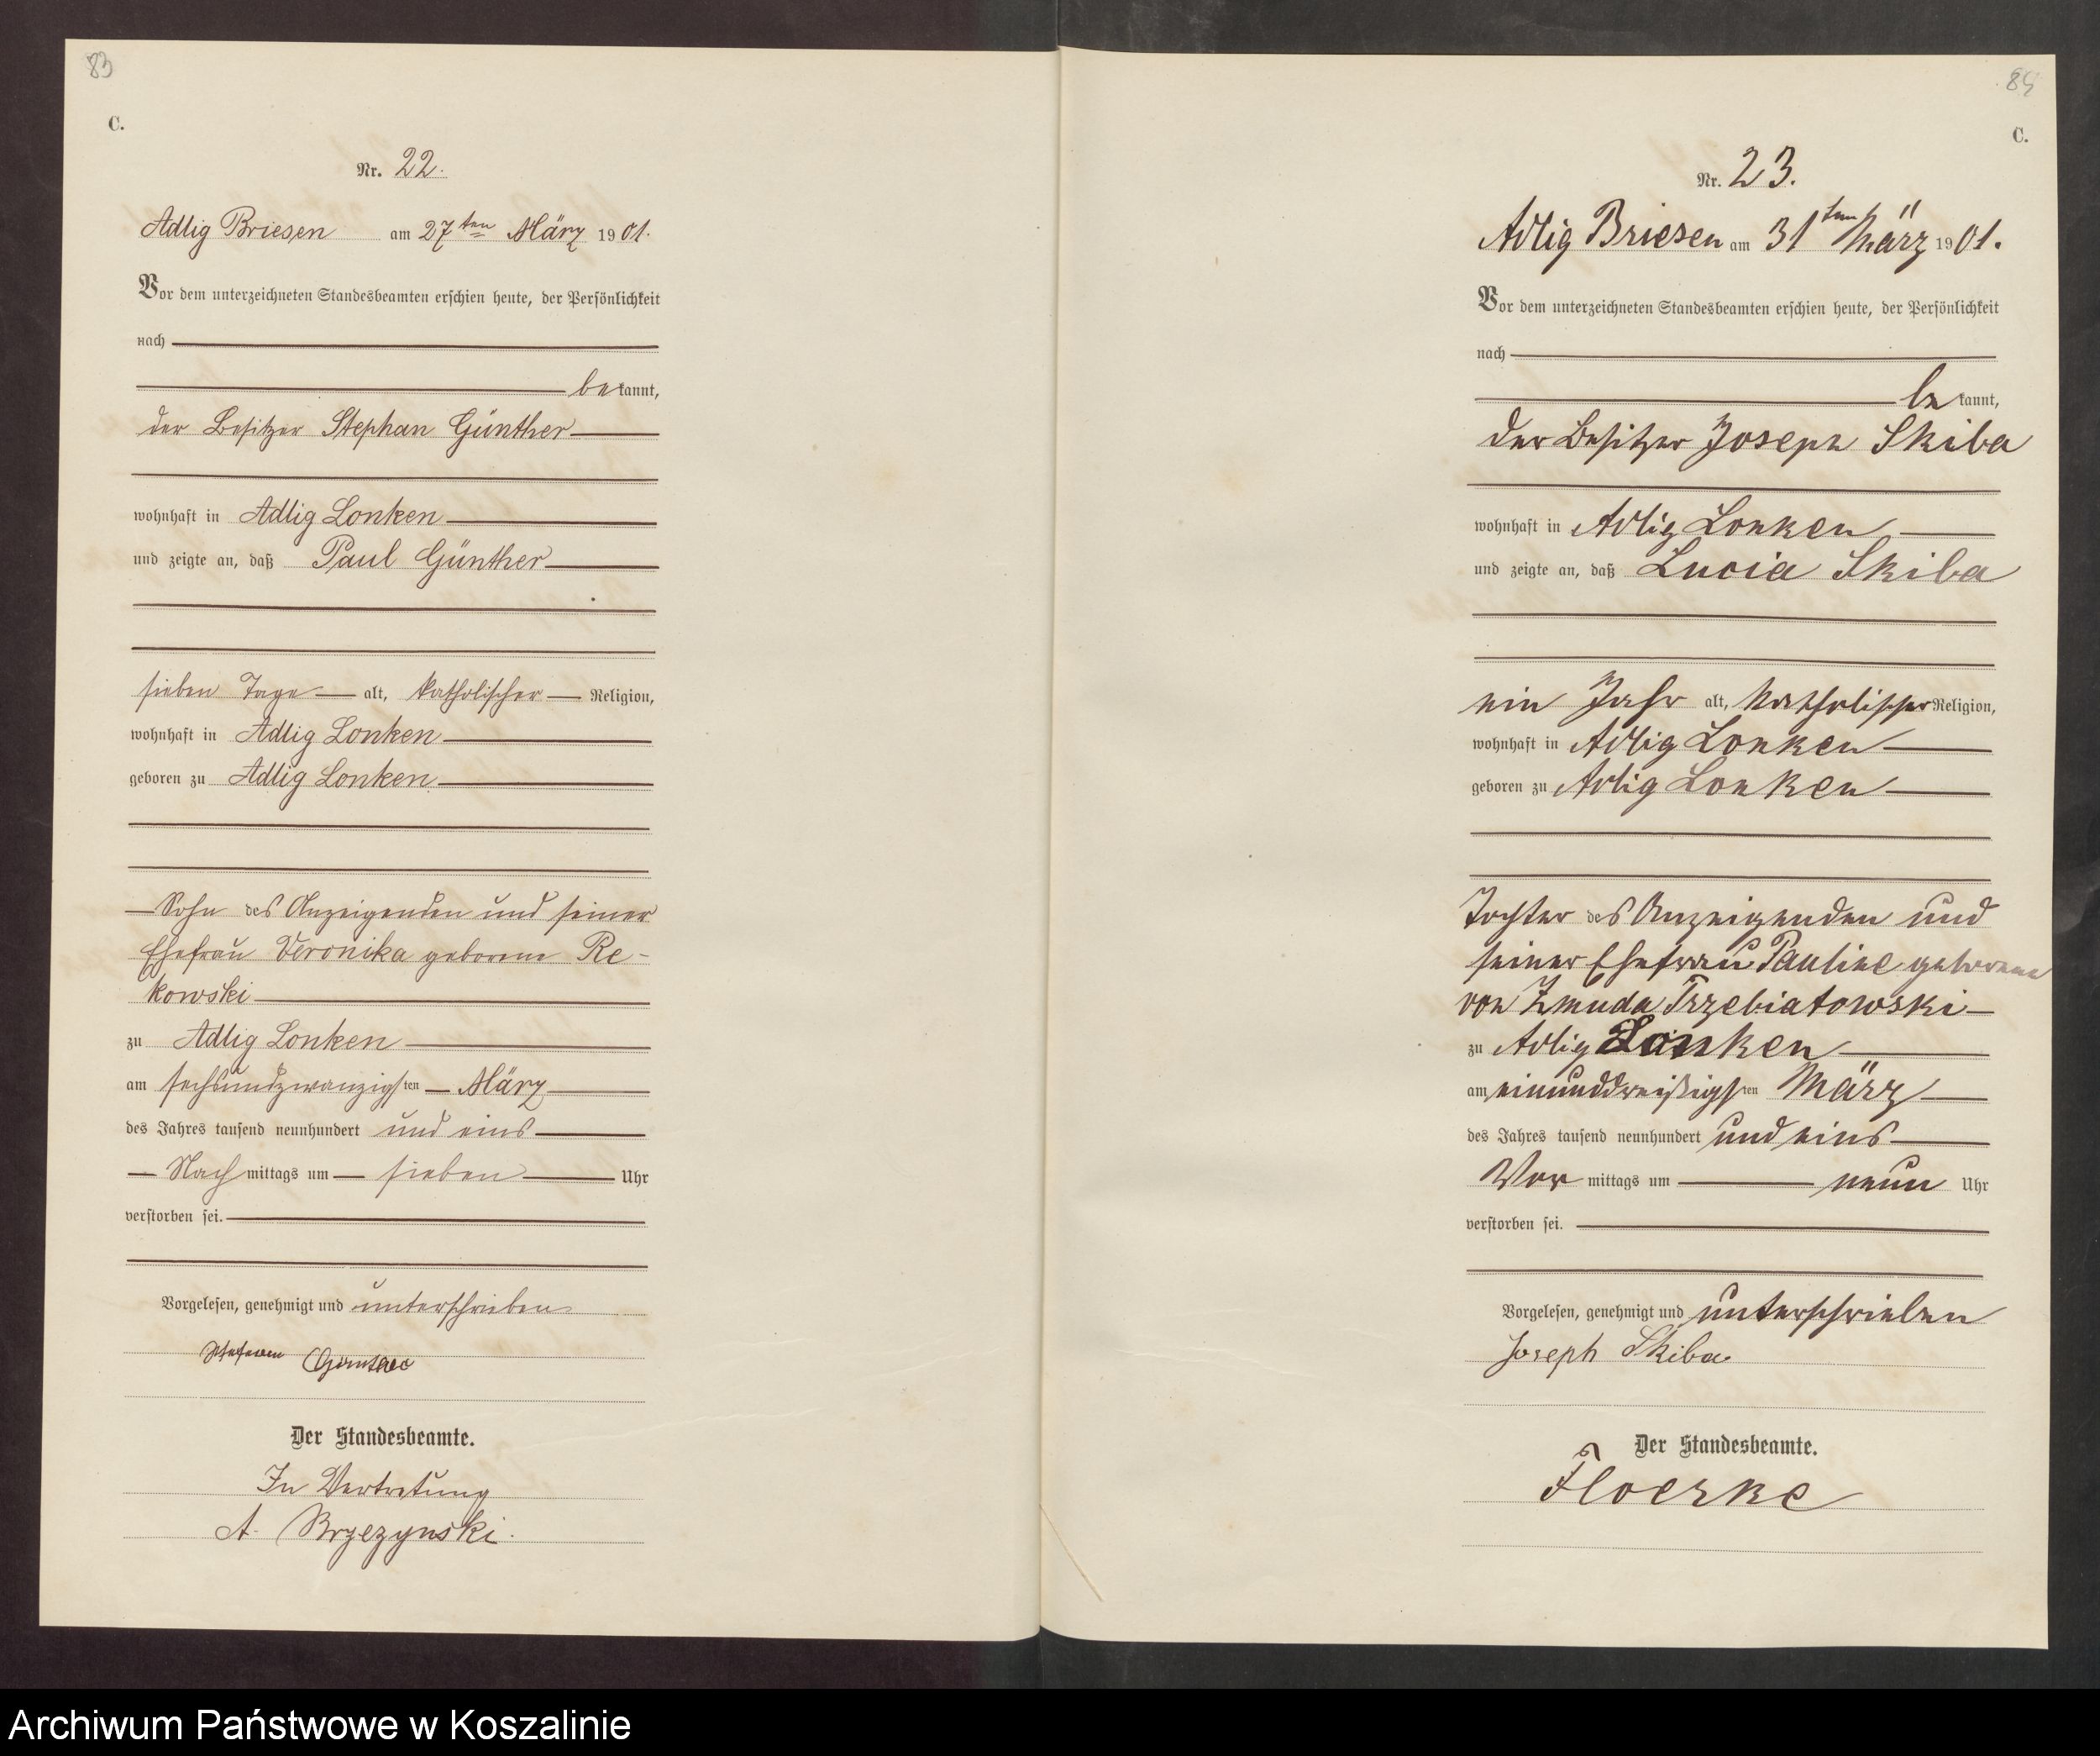 83
C.
Nr. 22.
Adlig Briesen am 27ten März 1901.
Vor dem unterzeichneten Standesbeamten erschien heute, der Persönlichkeit
nach
bekannt,
der Besitzer Stephan Günther
wohnhaft in Adlig Lonken
und zeigte an, daß Paul Günther
sieben Tage alt, katholischer Religion,
wohnhaft in Adlig Lonken
geboren zu Adlig Lonken
Sohn des Anzeigenden und seiner
Ehefrau Veronika geborene Re-
kowski
zu Adlig Lonken
am sechsundzwanzigsten März
des Jahres tausend neunhundert und eins
Nach mittags um sieben Uhr
verstorben sei.
Vorgelesen, genehmigt und unterschrieben
Der Standesbeamte.
In Vertretung
A. Brzezynski.
C.
Nr. 23.
Adlig Briesen am 31ten März 1901.
Vor dem unterzeichneten Standesbeamten erschien heute, der Persönlichkeit
nach
bekannt,
der Besitzer Joseph Skiba
wohnhaft in Adlig Lonken
und zeigte an, daß Lucia Skiba
ein Jahr alt, katholischer Religion,
wohnhaft in Adlig Lonken
geboren zu Adlig Lonken
Tochter des Anzeigenden und
seiner Ehefrau Pauline geborene
von Zmuda Trzebiatowski
zu Adlig Lonken
am einunddreißigsten März
des Jahres tausend neunhundert und eins
Vor mittags um neun Uhr
verstorben sei.
Vorgelesen, genehmigt und unterschrieben
Joseph Skiba
Der Standesbeamte.
Floerke
Archiwum Państwowe w Koszalinie